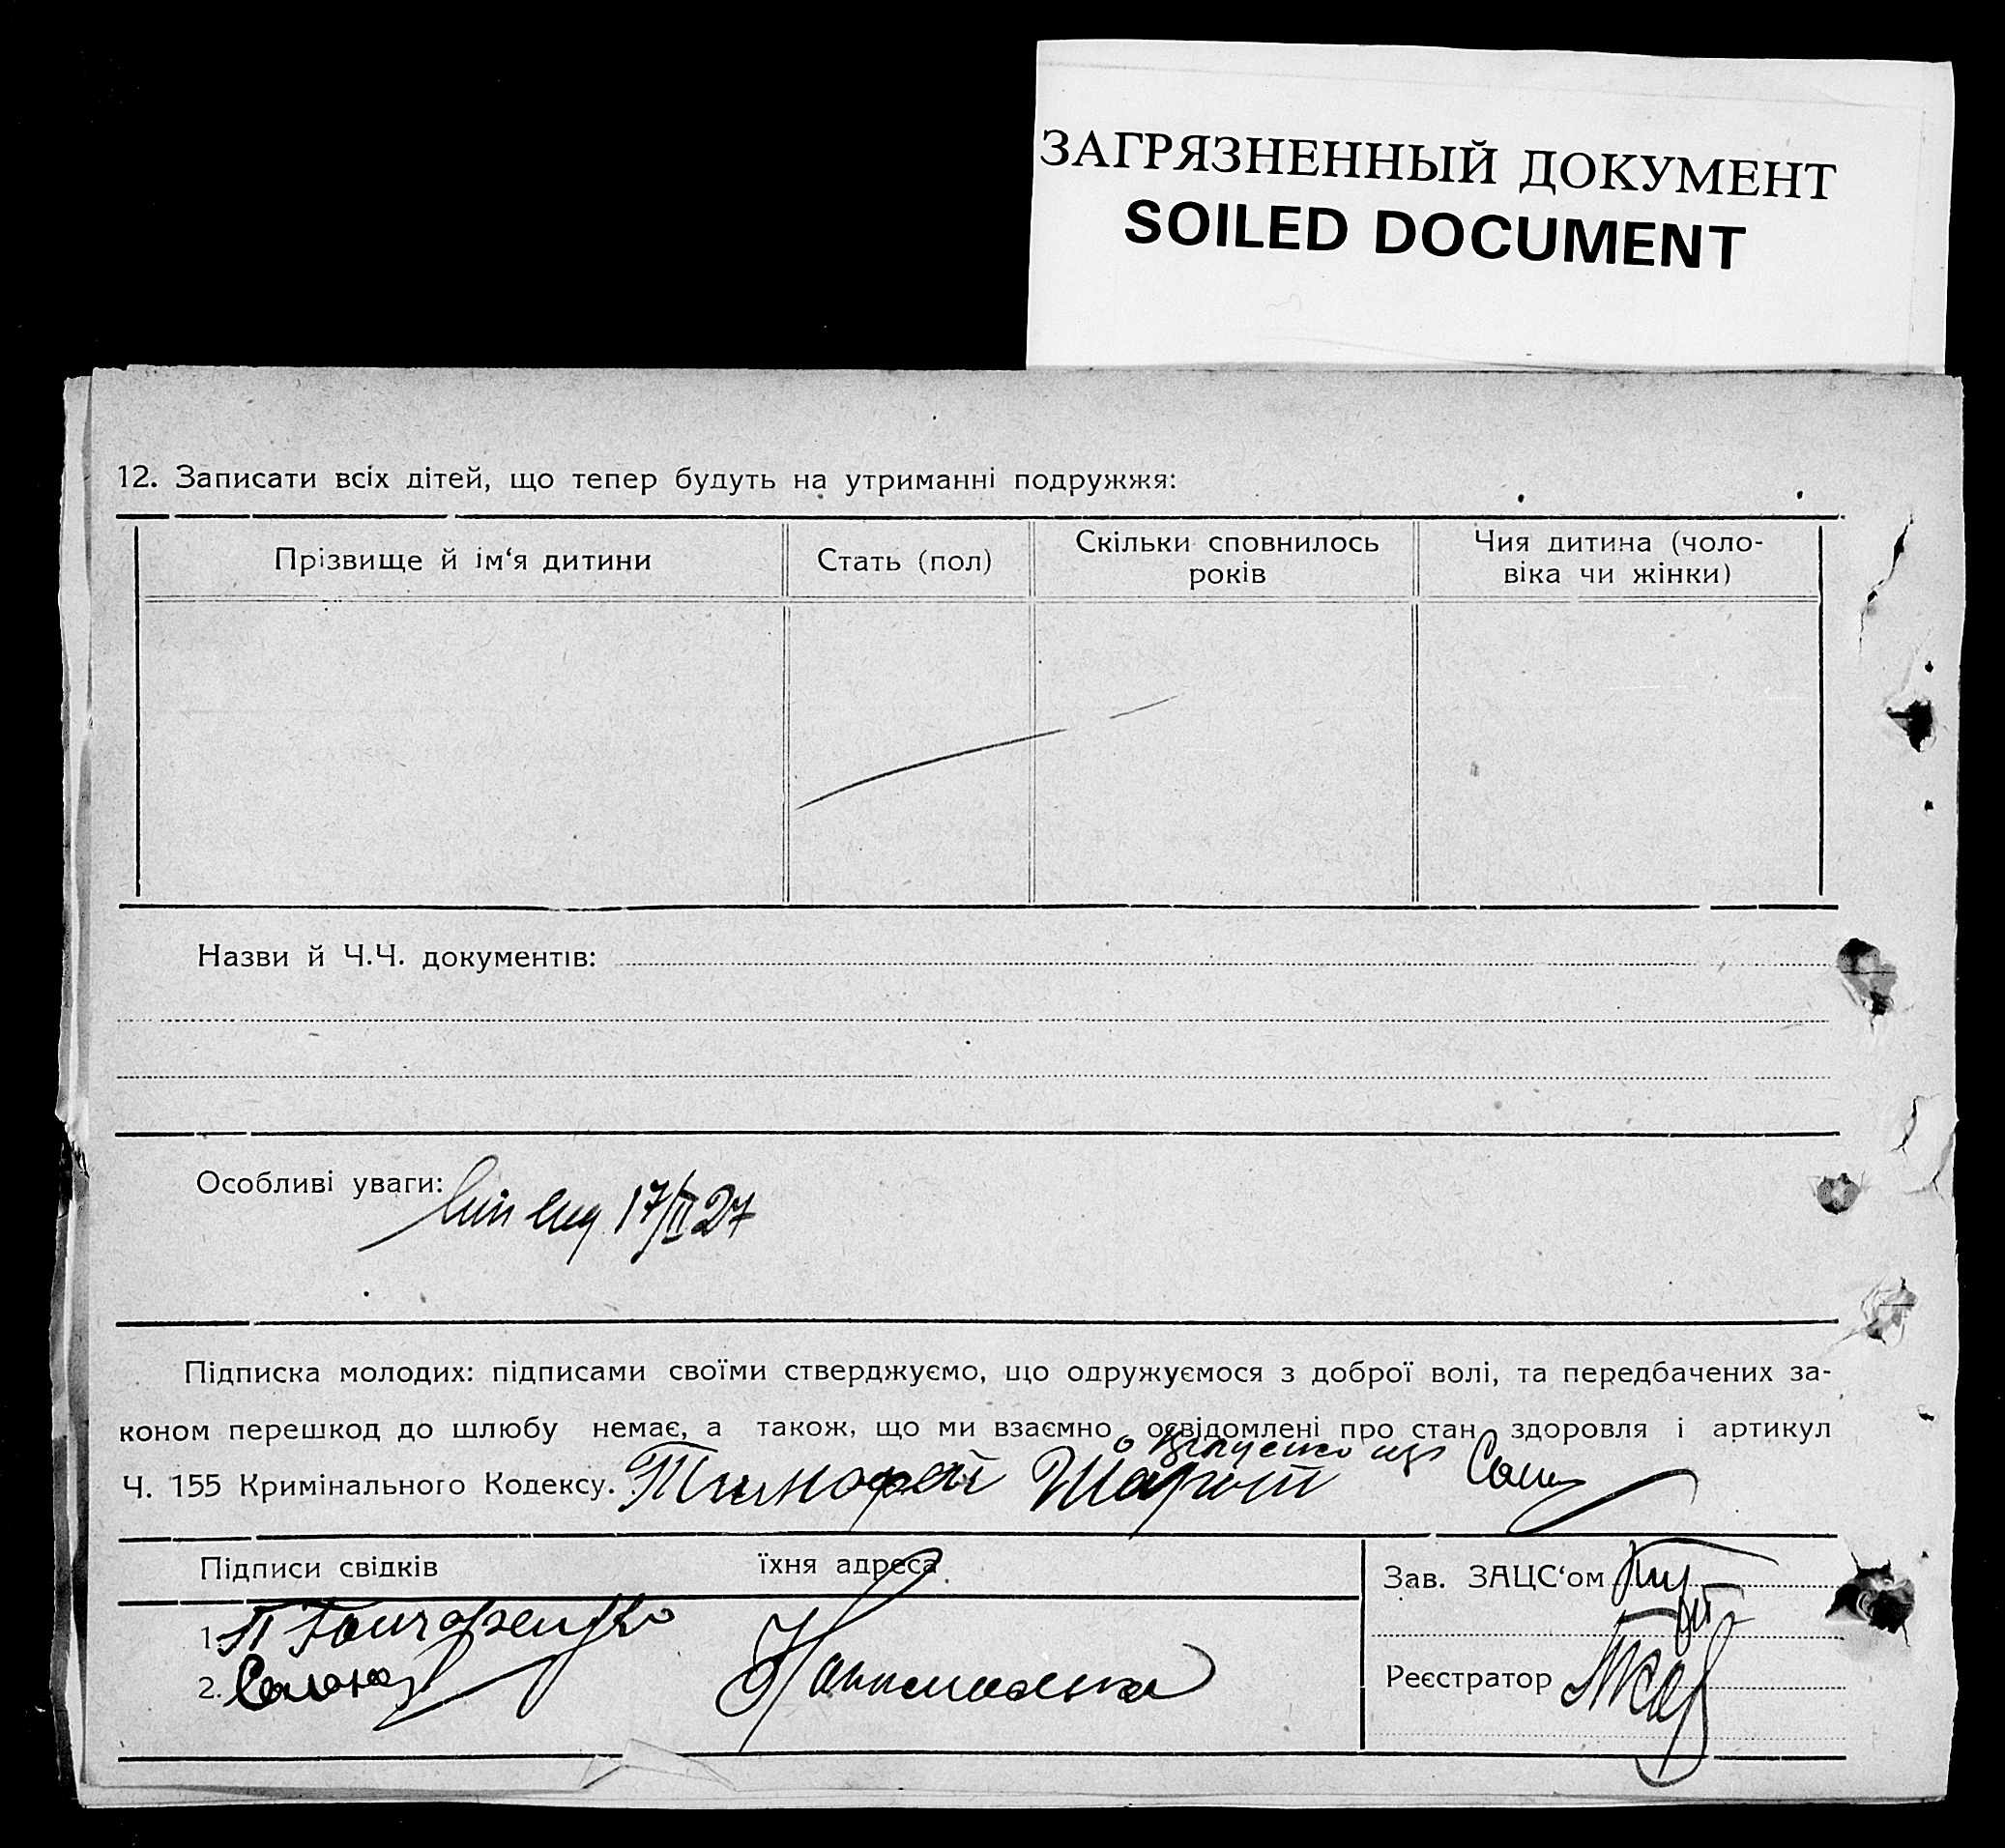 ЗАГРЯЗНЕННЫЙ ДОКУМЕНТ
SOILED DOCUMENT
12. Записати всіх дітей, що тепер будуть на утриманні подружжя:
Прізвище й ім‘я дитини
Стать (пол)
Скільки сповнилось
років
Чия дитина (чоло-
віка чи жінки)
Назви й Ч.Ч. документів:
Особливі уваги: 17/II 27
Підписка молодих: підписами своїми стверджуємо, що одружуємося з доброї волі, та передбачених за-
коном перешкод до шлюбу немає, а також, що ми взаємно освідомлені про стан здоровля і артикул
Ч. 155 Кримінального Кодексу. Тимофей
Підписи свідків їхня адреса
Зав. ЗАЦС‘ом
1. П Гончаренко
2.
Реєстратор